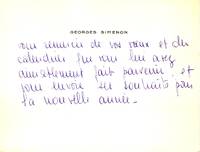 GEORGES SIMENON
vous remercie de vos vœux et du
calendrier que vous lui avez
aimablement fait parvenir et
vous envoie ses souhaits pour
la nouvelle année.